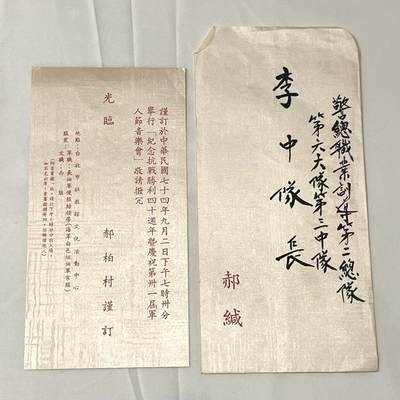 謹訂於中華民國七十四年九月二日下午七時卅分
舉行「紀念抗戰勝利四十週年暨慶祝第卅一屆軍
人節音樂會」敬請撥冗
光臨
郝柏村謹訂
地點：台北市社教館文化活動中心
警總職業訓導第二總隊
第六大隊第三中隊
李中隊長
郝緘